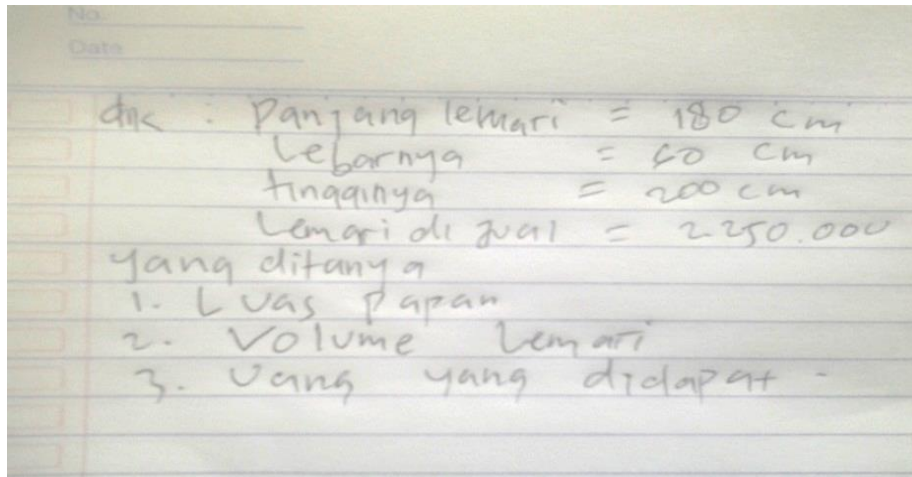 No.
Date
dik : Panjang lemari = 180 cm
Lebarnya = 60 cm
tingginya = 200 cm
Lemari di jual = 2.250.000
yang ditanya
1. Luas Papan
2. Volume Lemari
3. Uang yang didapat.